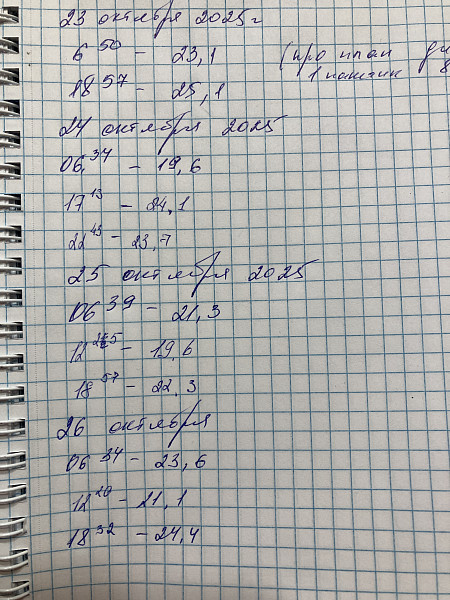 23 октября 2025г
6 50 - 23,1 (про
18 57 - 25,1 1
24 октября 2025
06 34 - 19,6
17 13 - 24,1
22 43 - 23,7
25 октября 2025
06 39 - 21,3
12 - 19,6
18 57 - 22,3
26 октября
06 34 - 23,6
12 20 - 21,1
18 32 - 24,4